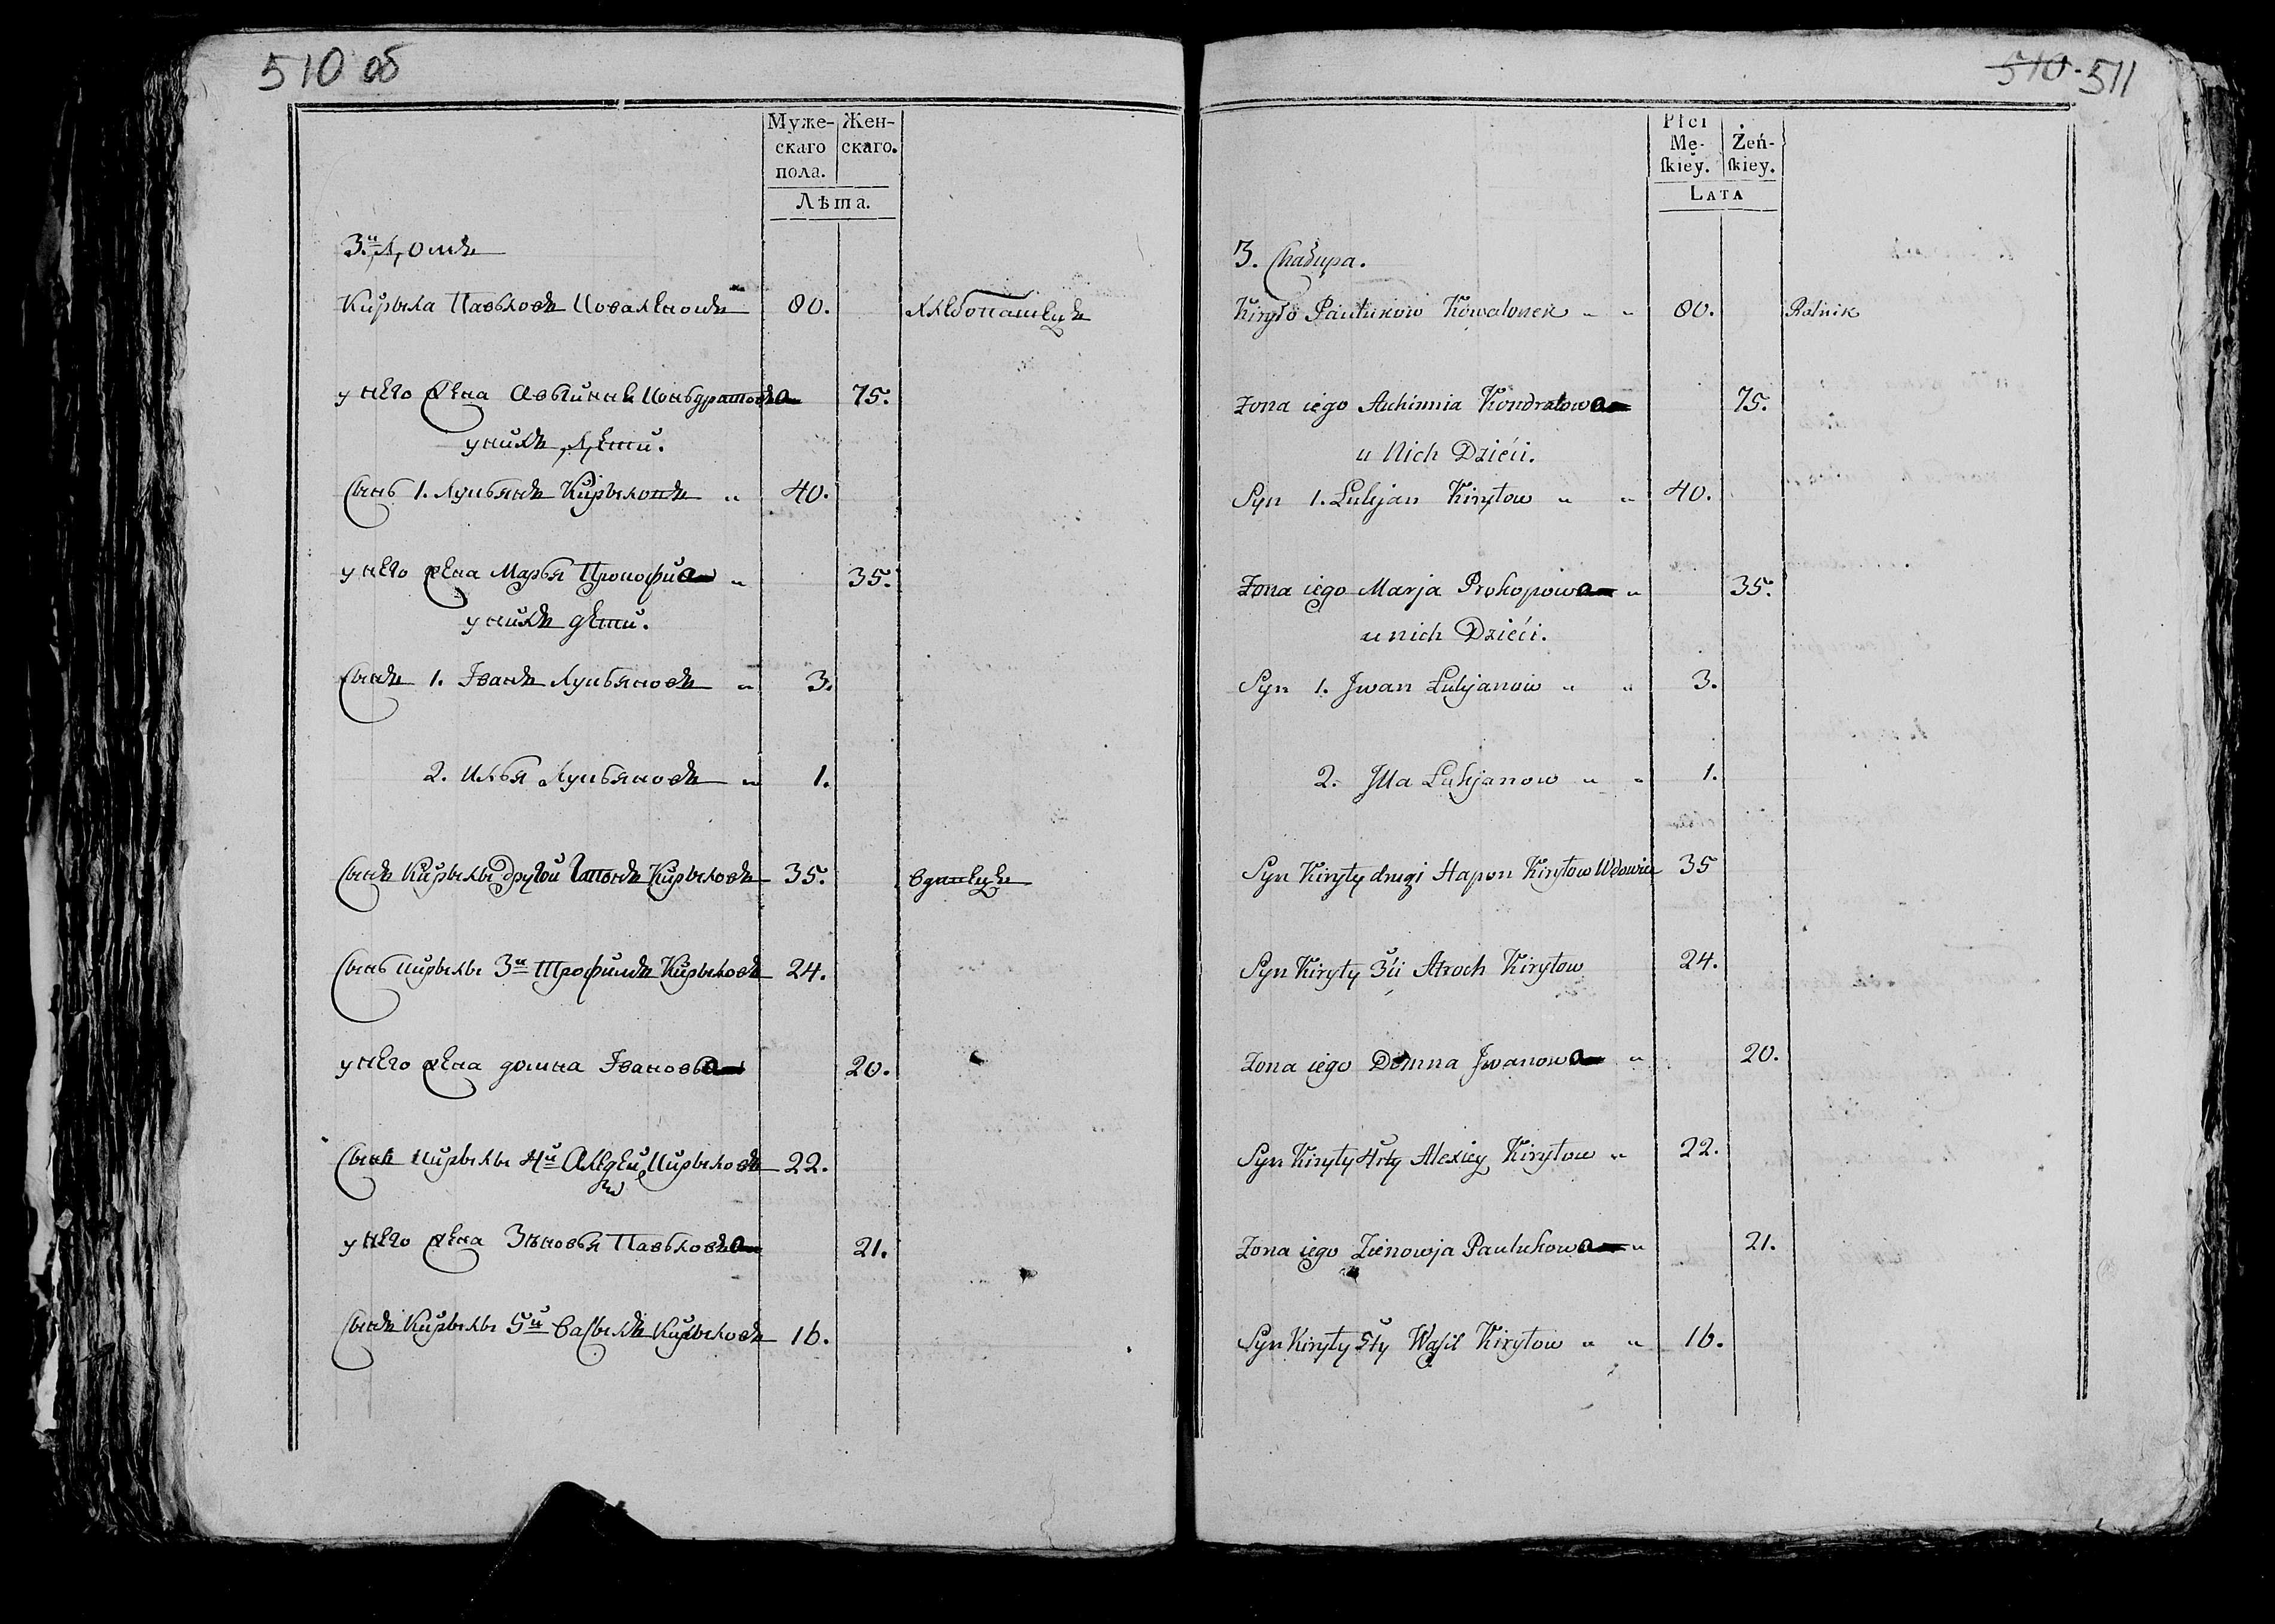 510 об
Муже-
скаго
пола.
Жен-
скаго.
Лѣта.
3й Домъ
Кирыла Павлковъ Коваленокъ 80. хлебопашецъ
у него жена Авгиння Кондратова 75.
у нихъ дети.
Сынъ 1. Лукьянъ Кирыловъ „ 40.
у него жена Марья Прокофи „ 35.
у нихъ дети.
Сынъ 1. Іванъ Лукьяновъ „ 3.
2. Илья Лукьяновъ „ 1.
Сынъ Кирылы другой Гапонъ Кирыловъ 35. вдовецъ
Сынъ Кирылы 3й Трофимъ Кирыловъ 24.
у него жена домна Іванова 20.
Сынъ Кирылы 4й Кирыловъ 22.
у него жена Зѣновья Павлкова 21.
Сынъ Кирылы 5й Васылъ Кирыловъ 16.
510. 511
Płci
Mę-
skiey.
Żeń-
skiey.
LATA
3. Chałupa.
Kiryło Pawlukow Kowalonek „ „ 80. Rolnik
Żona iego Auhinnia Kondratowa 75.
u Nich Dzieći.
Syn 1. Lukjan Kiryłow „ „ 40.
Żona iego Marja Prokopowa „ 35.
u nich Dzieći.
Syn 1. Jwan Lukjanow „ „ 3.
2. Jlla Lukjanow „ „ 1.
Syn Kiryły drugi Hapon Kiryłow Wdowiec 35
Syn Kiryły 3ći Atroch Kiryłow 24.
Żona iego Domna Jwanowa „ 20.
Syn Kiryły 4rty Alexiey Kiryłow „ 22.
Żona iego Zienowja Pawlukowa „ 21.
Syn Kiryły 5ty Wasil Kiryłow „ „ 16.